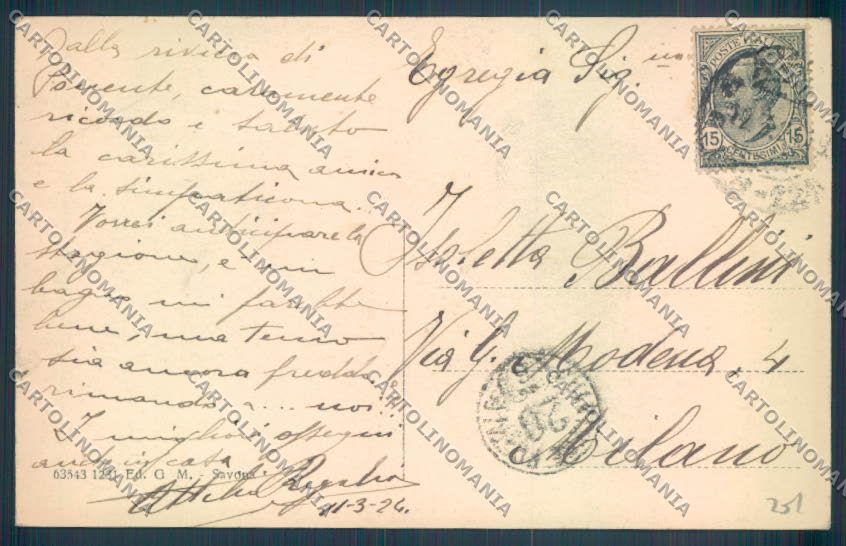 Dalla riviera di
Ponente, caramente
ricordo e saluto
la carissima amica
e la simpaticona...
Vorrei anticipare la
stagione, e un
bagno mi farebbe
bene, ma temo
sia ancora freddo
rimando a... noi...
I migliori ossequi
anche in casa
Attilio
11-3-26.
63543 1231 Ed. G. M. - Savona
Egregia Sig.na
Isoletta Ballini
Via G. Modena, 4
Milano
POSTE ITALIANE
15 15
CENTESIMI
251
CARTOLINOMANIA